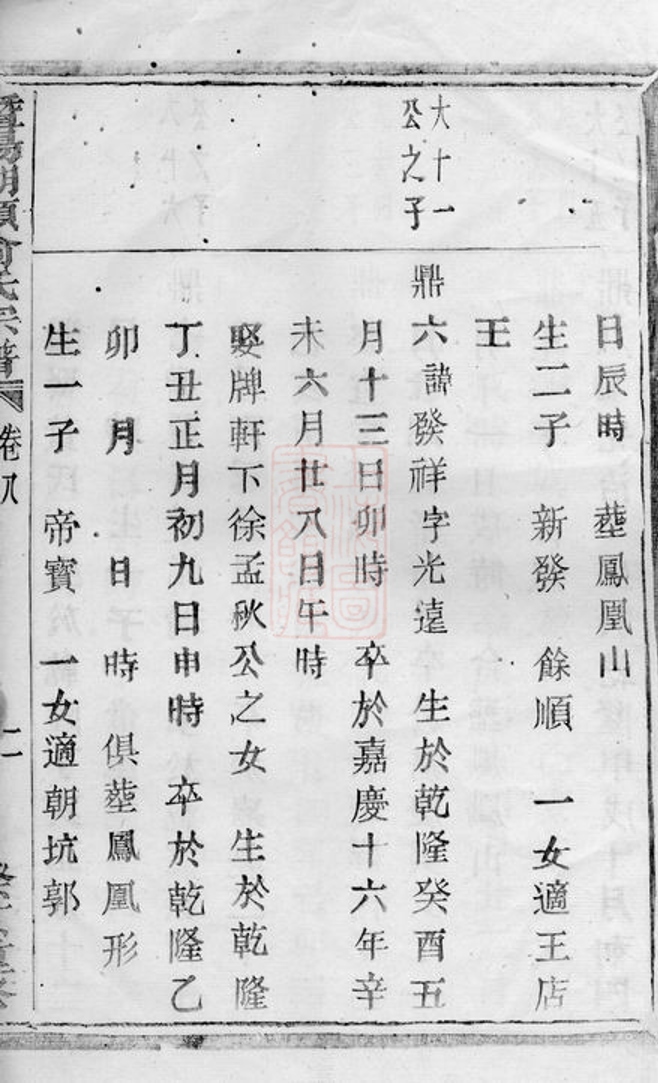 日辰時　塟鳳凰山
生二子　新發　餘順　一女適王店
王
大十一
公之子
鼎六諱發祥字光遠　生於乾隆癸酉五
月十三日卯時　卒於嘉慶十六年辛
未六月廿八日午時
娶牌軒下徐孟秋公之女　生於乾隆
丁丑正月初九日申時　卒於乾隆乙
卯　月　日　時　俱塟鳳凰形
生一子　帝寳　一女適朝坑郭
暨陽湖頭俞氏宗譜　卷八　二